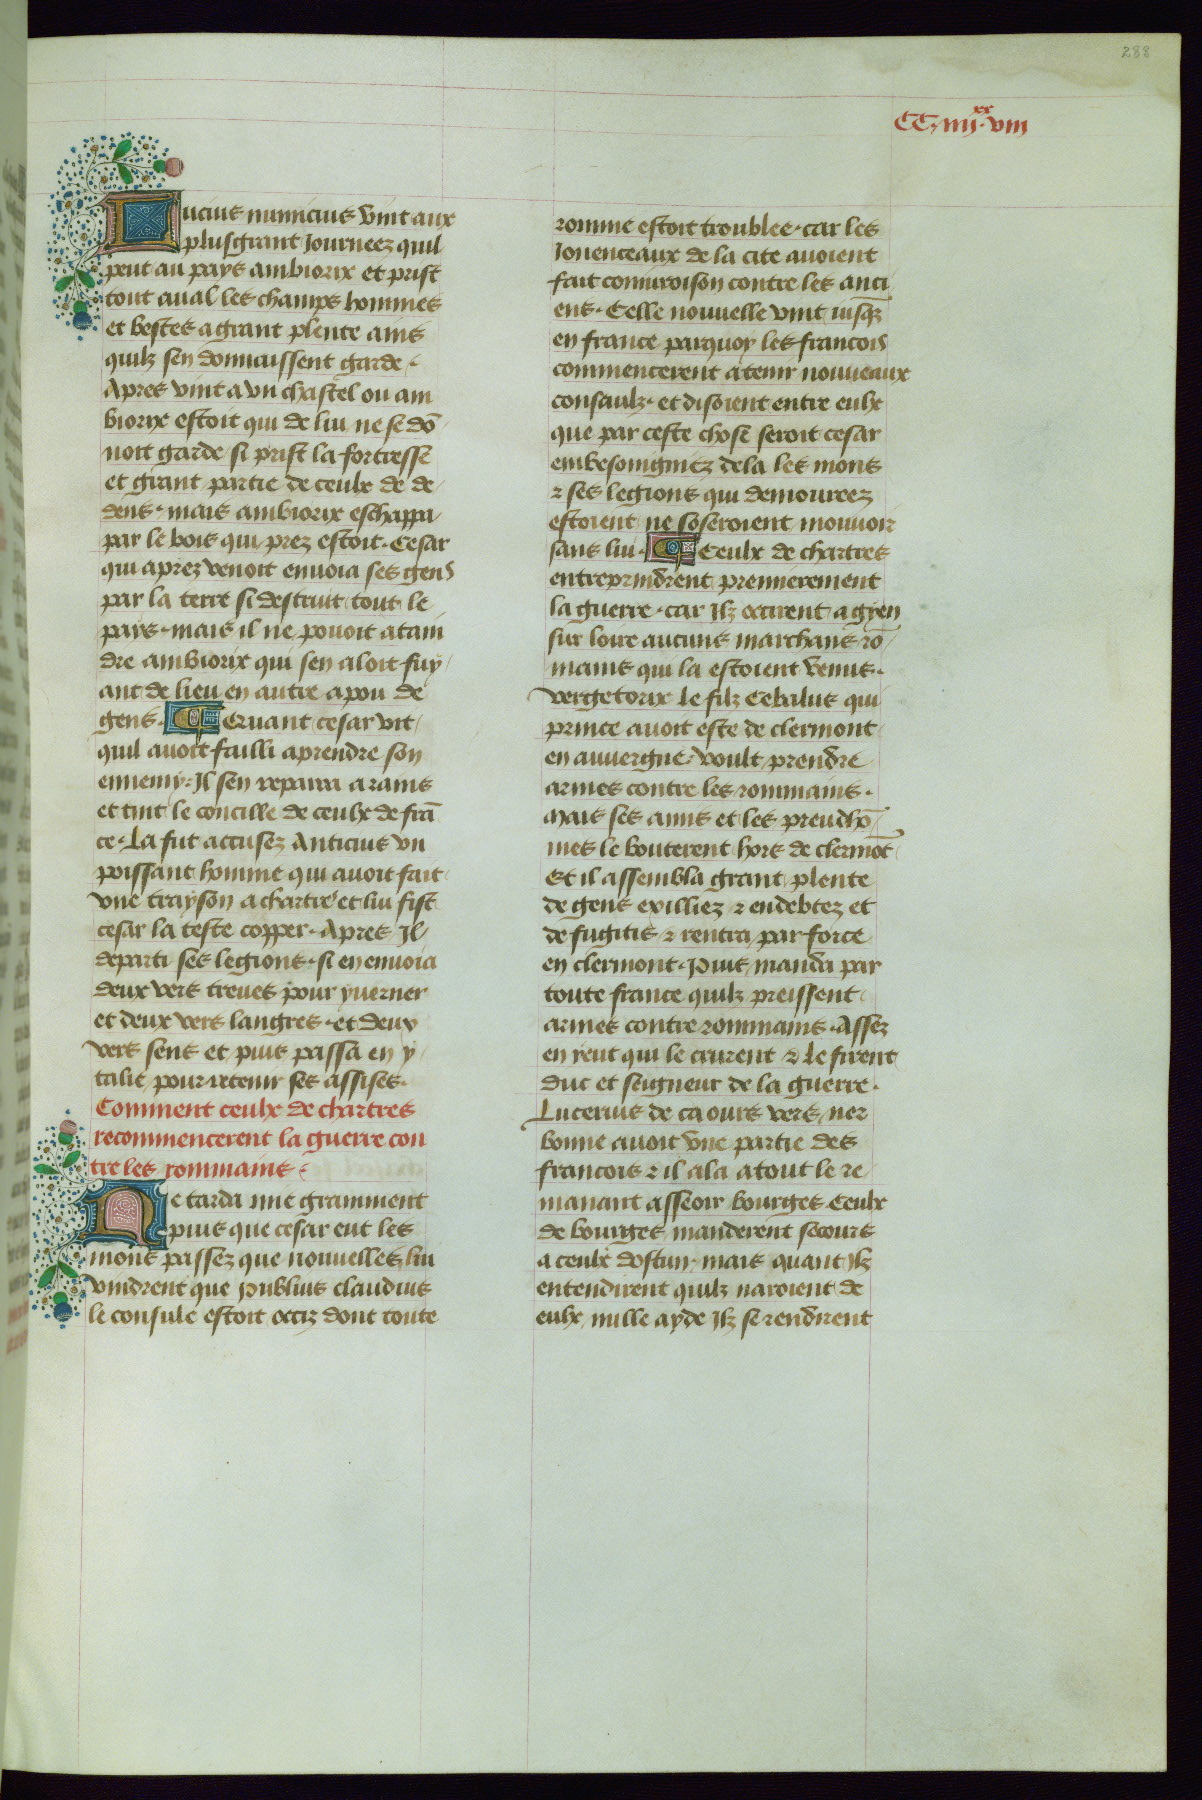 288
CC. iiijxx. viij
Lucius numicius vint aux
plus grant Journeez quil
peut au pays ambiorix et prist
tout aual les champs hommes
et bestes a grant plente ains
quilz sen donnaissent garde.
Apres vint a vn chastel ou am
biorix estoit qui de lui ne se dō
noit garde si prist la fortresse
et grant partie de ceulx de de
dens. mais ambiorix eschappa
par le bois qui prez estoit. Cesar
qui aprez venoit enuoia ses gens
par la terre si destruit tout le
pays. mais il ne pouoit atain
dre ambiorix qui sen aloit fuy
ant de lieu en autre a pou de
gens. Quant cesar vit
quil auoit failli a prendre son
ennemy. Il sen repaira a rains
et tint le concille de ceulx de frā
ce. La fut accusez Anticius vn
poissant homme qui auoit fait
vne trayson a chartre et lui fist
cesar la teste copper. Apres Il
departi ses legions. si en enuoia
deux vers treues pour yuerner
et deux vers langres. et deux
vers sens et puis passa en y
talie pour retenir ses assises.
Comment ceulx de chartres
recommencerent la guerre con
tre les rommains.
Ne tarda mie gramment
puis que cesar eut les
mons passez que nouuelles lui
vindrent que Publius claudius
le consule estoit occiz dont toute
romme estoit troublee. car les
Jouenceaux de la cite auoient
fait coniuroison contre les anci
ens. Celle nouuelle vint iusqz
en france parquoy les francois
commencerent a tenir nouueaux
consaulz. et disoient entre eulx
que par ceste chose seroit cesar
embesoingniez dela les mons
& ses legions qui demoureez
estoient ne soseroient mouuoir
sans lui. Ceulx de chartres
entreprindrent premierement
la guerre. car Ilz occirent a gyen
sur loire aucuns marchans rō
mains qui la estoient venus.
vergetorix le filz Celtalus qui
prince auoit este de clermont
en auuergne. voult prendre
armes contre les rommains.
Mais ses amis et les preudhō
mes le bouterent hors de clermōt
Et il assembla grant plente
de gens exilliez & endebtez et
de fugitis & rentra par force
en clermont. Puis manda par
toute france quilz preissent
armes contre rommains. Assez
en yeut qui le crurent & le firent
duc et seigneur de la guerre.
Lucerius de caours vers ner
bonne auoit vne partie des
francois & il ala a tout le re
manant asseoir bourges Ceulx
de bourges manderent secours
a ceulx dostun. mais quant Ilz
entendirent quilz naroient de
eulx nulle ayde Ilz se rendirent